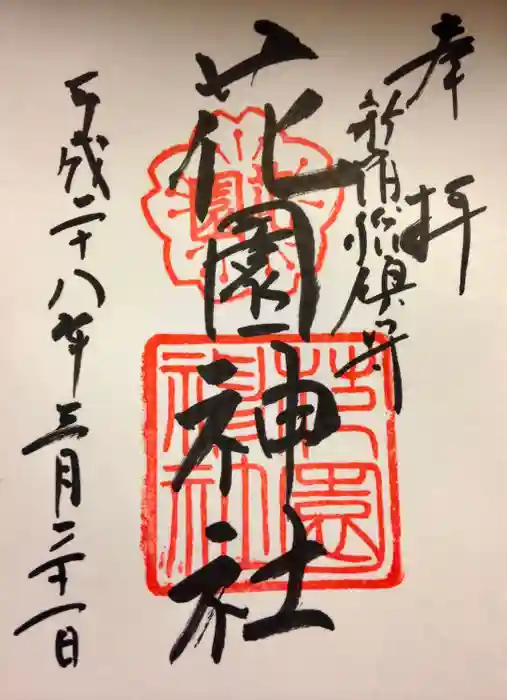 奉拝
新宿総鎮守
花園神社
平成二十八年三月二十一日
花園神社